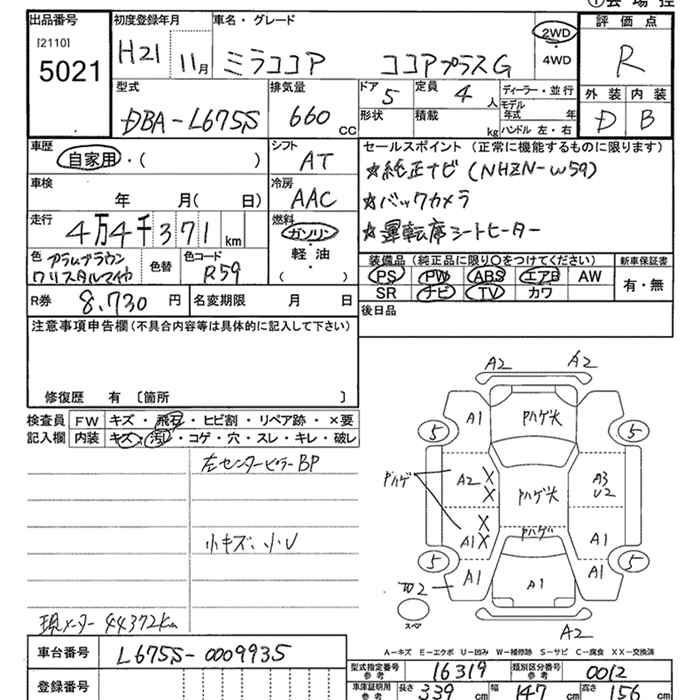 出品番号
[2110]
5021
初度登録年月
H21 11月
車名・グレード
ミラココア ココアプラスG
2WD
・
4WD
評価点
R
外装 内装
D B
型式
DBA-L675S
排気量
660 cc
ドア 5
形状
定員 4 人
積載 kg
ディーラー・並行
モデル年式 年
ハンドル 左・右
車歴
自家用・( )
シフト
AT
車検
年 月( 日)
冷房
AAC
走行
4万4千371 km
燃料
ガソリン
・
軽油
・
( )
色 色替 色コード
R59
R券 8,730 円
名変期限 月 日
セールスポイント (正常に機能するものに限ります)
☆純正ナビ(NHZN-W59)
☆バックカメラ
☆運転席シートヒーター
装備品(純正品に限り○をつけてください)
PS PW ABS エアB AW
SR ナビ TV カワ
新車保証書
有・無
後日品
注意事項申告欄(不具合内容等は具体的に記入して下さい)
修復歴 有 〔箇所 〕
検査員
記入欄
FW キズ・飛石・ヒビ割・リペア跡・×要
内装 キズ・汚れ・コゲ・穴・スレ・キレ・破レ
左センターピラーBP
小キズ、小U
現メーター 44372km
A2 A2
A1 Pハゲ大
5 5
Pハゲ
A2 X X Pハゲ大 A3 U2
X X A1 Pハゲ A1
5 5
A1 A1 A1
スペア
A2
A-キズ E-エクボ U-凹み W-補修跡 S-サビ C-腐食 XX-交換済
車台番号
L675S-0009935
登録番号
型式指定番号
参考
16319
類別区分番号
参考
0012
車庫証明用
参考
長さ 339 cm 幅 147 cm 高さ 156 cm